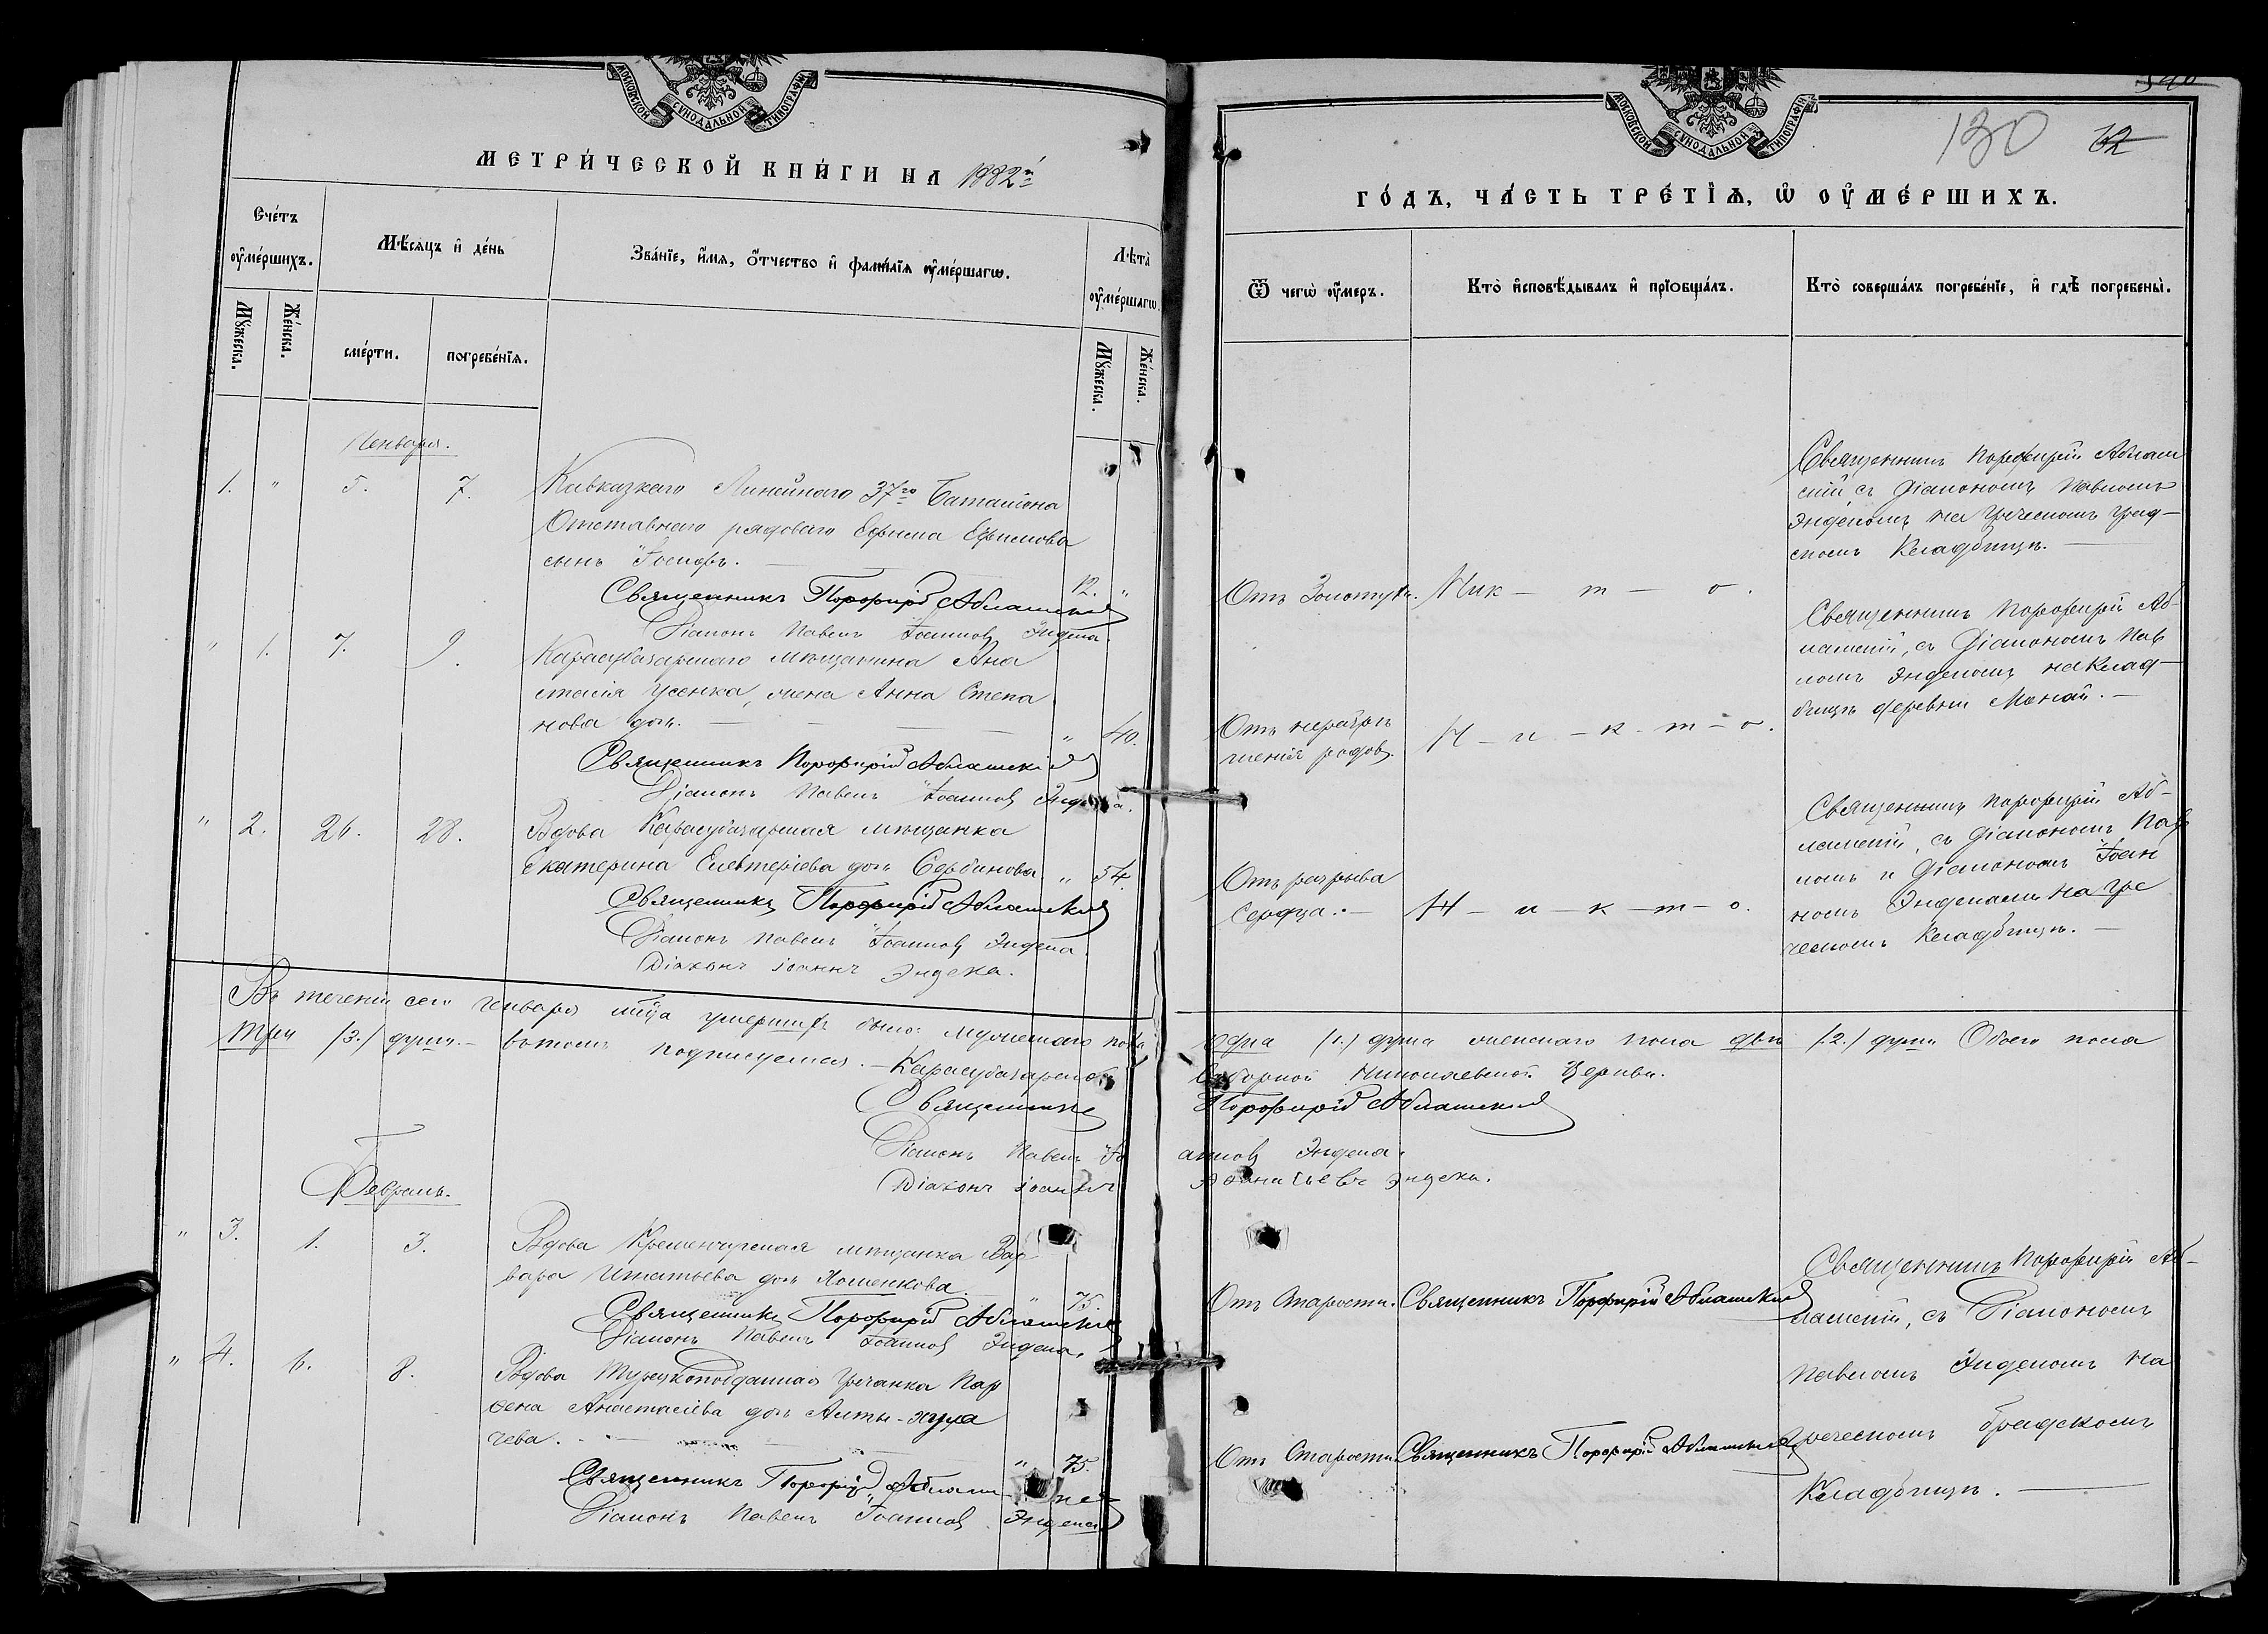 МОСКОВСКОЙ СѴНОДАЛЬНОЙ ТИПОГРАФІИ
МЕТРИ́ЧЕСКОЙ КНИ́ГИ НА 1882й
Сче́тъ ᲂу҆ме́ршихъ.
Мꙋ́жеска.
Же́нска.
Мѣ́сяцъ и҆ де́нь
сме́рти.
погребе́нїѧ.
Зва́нїе, и҆́мѧ, ѻ҆́тчество и҆ фами́лїѧ ᲂу҆ме́ршагѡ.
Лѣ́та ᲂу҆ме́ршагѡ.
Мꙋ́жеска.
Же́нска.
Генваря.
1. " 5. 7. Кавказкаго Линейнаго 37го Баталіона
Отставнаго рядоваго Ефима Ефимова
сынъ Іосифъ. 12. "
Священникъ Порфирій Аблашскій
Діаконъ Павелъ Іоанновъ Эндека.
" 1. 7. 9. Карасубазарскаго мѣщанина Ана
стасія Усенка, жена Анна Степа
нова дочь. " 40.
Священникъ Порфирій Аблашскій
Діаконъ Павелъ Іоанновъ Эндека.
" 2. 26. 28. Вдова Карасубазарская мѣщанка
Екатерина Елевтеріева дочь Сербинова " 54.
Священникъ Порфирій Аблашскій
Діаконъ Павелъ Іоанновъ Эндека.
Діаконъ Іоаннъ Эндека.
Въ теченіи сего Генваря мѣсца умершихъ было: мужескаго пола
три /3./ души. — въ томъ подписуемся. — Карасубазарской
Священникъ
Діаконъ Павелъ Іо
Діаконъ Іоаннъ
Февраль.
" 3. 1. 3. Вдова Кременчугская мѣщанка Вар
вара Игнатьева дочь Хоменкова. " 75.
Священникъ Порфирій Аблашскій
Діаконъ Павелъ Іоанновъ Эндека.
" 4. 6. 8. Вдова Турецкоподданная Гречанка Пар
ѳена Анастасіева дочь Алты-
чева. " 75.
Священникъ Порфирій
Діаконъ Павелъ Іоанновъ Эндека
МОСКОВСКОЙ СѴНОДАЛЬНОЙ ТИПОГРАФІИ
130 62
ГО́ДЪ, ЧА́СТЬ ТРЕ́ТЇѦ, Ѽ ОУ҆МЕ́РШИХЪ.
Ѿ чегѡ̀ ᲂу҆́меръ.
Кто̀ и҆сповѣ́дывалъ и҆ прїѻбща́лъ.
Кто̀ соверша́лъ погребе́нїе, и҆ гдѣ̀ погребены̀.
Священникъ Порфирій Аблаш
скій, съ Діакономъ Павломъ
Эндекомъ на Греческомъ град-
скомъ Кладбищѣ. —
Отъ Золотухи. Ник — т — о.
Священникъ Порфирій Аб-
лашскій, съ Діакономъ Пав
ломъ Эндекомъ на Клад-
бищѣ деревни Монай. —
Отъ неразрѣ
шенія родовъ. Н — и — к — т — о.
Священникъ Порфирій Аб-
лашскій, съ Діакономъ Пав
ломъ и Діакономъ Іоан
номъ Эндеками на Гре
ческомъ Кладбищѣ. —
Отъ разрыва
сердца. — Н — и — к — т — о.
одна /1./ душа женскаго пола двѣ /2./ души Обоего пола
Соборной Николаевской Церкви.
Порфирій Аблашскій
анновъ Эндека.
Эндека.
Отъ Старости. Священникъ Порфирій Аблашскій
Священникъ Порфирій Аб-
лашскій, съ Діакономъ
Павломъ Эндекомъ на
Греческомъ Градскомъ
Кладбищѣ. —
Отъ Старости. Священникъ Порфирій Аблашскій